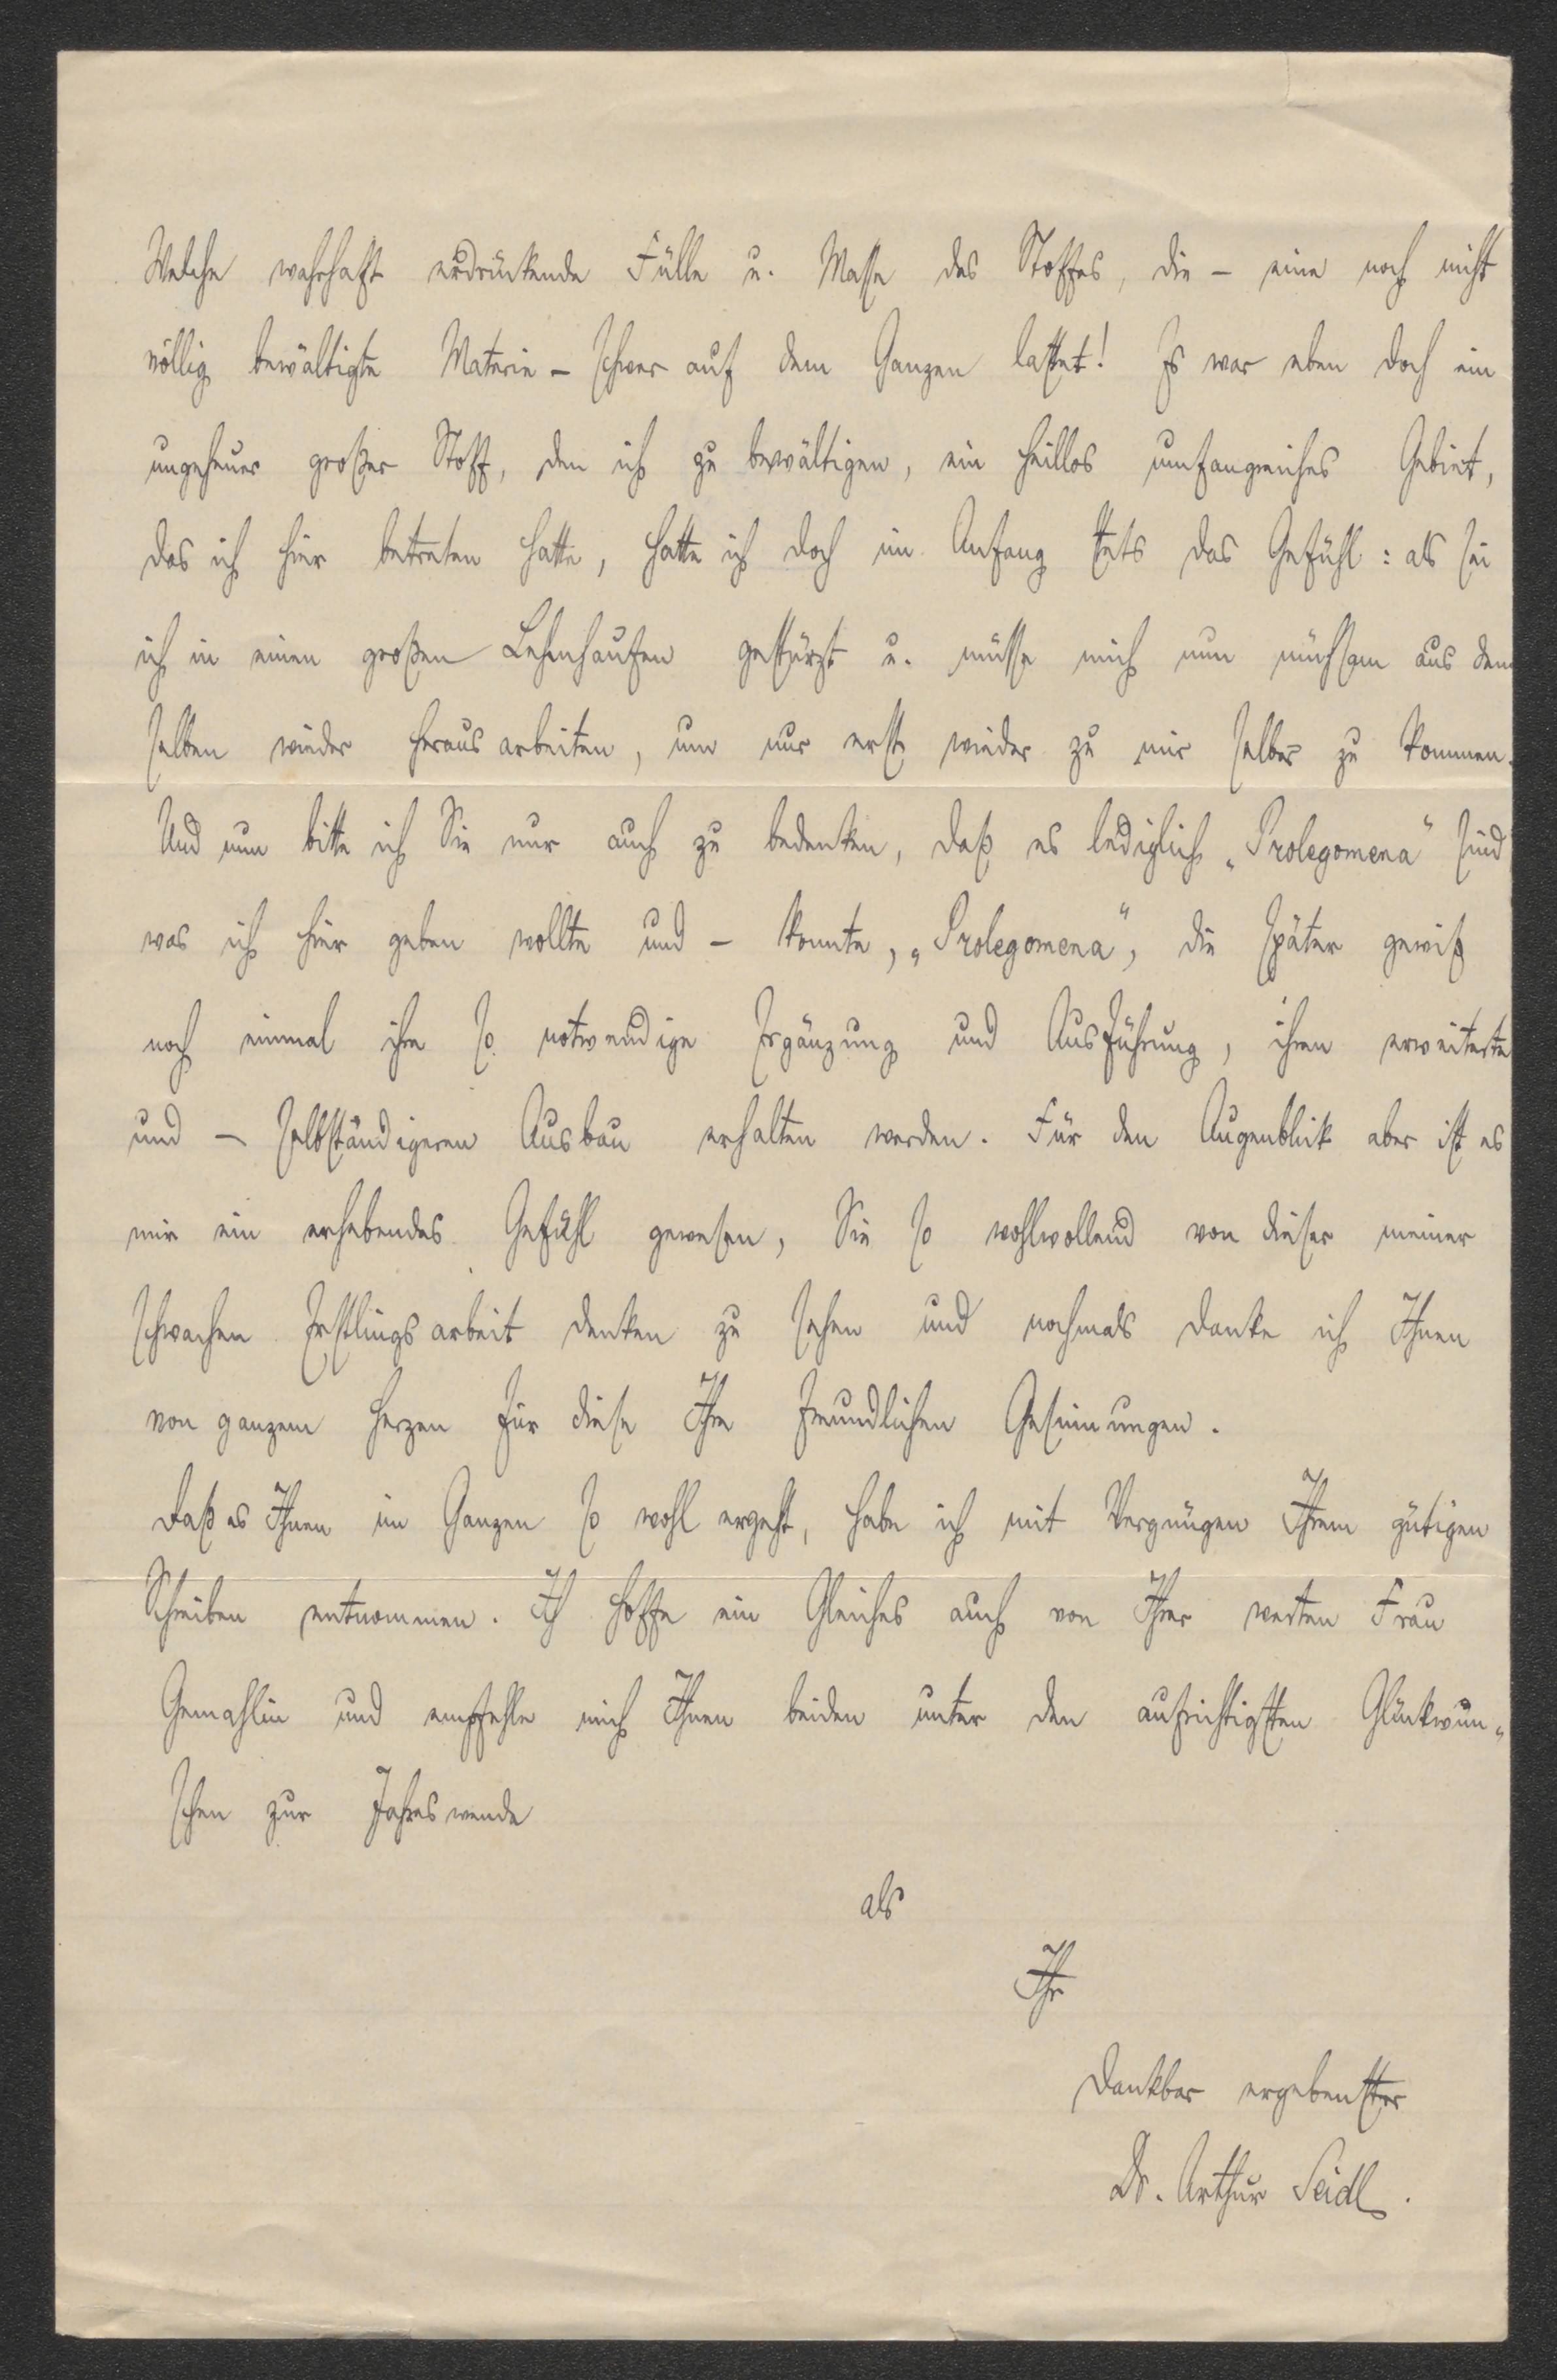 Welche wahrhaft erdrückende Fülle u. Masse des Stoffes, die – eine noch nicht
völlig bewältigte Materie – schwer auf dem Ganzen lastet! Es war eben doch ein
ungeheuer großer Stoff, den ich zu bewältigen, ein heillos umfangreiches Gebiet,
das ich hier betreten hatte, hatte ich doch im Anfang stets das Gefühl: als sei
ich in einen großen Lehmhaufen gestürzt u. müsse mich nun mühsam aus dem
selben wieder herausarbeiten, um nur erst wieder zu mir selber zu kommen.
Und nun bitte ich Sie nur auch zu bedenken, daß es lediglich „Prolegomena“ sind
was ich hier geben wollte und – konnte, „Prolegomena“, die später gewiß
noch einmal ihre so notwendige Ergänzung und Ausführung, ihren erweiterte
und – selbständigeren Ausbau erhalten werden. Für den Augenblick aber ist es
mir ein erhebendes Gefühl gewesen, Sie so wohlwollend von dieser meiner
schwachen Erstlingsarbeit denken zu sehen und nochmals danke ich Ihnen
von ganzem Herzen für diese Ihre freundlichen Gesinnungen.
Daß es Ihnen im Ganzen so wohl ergeht, habe ich mit Vergnügen Ihrem gütigen
Schreiben entnommen. Ich hoffe ein Gleiches auch von Ihrer werten Frau
Gemahlin und empfehle mich Ihnen beiden unter den aufrichtigsten Glückwün-
schen zur Jahreswende
als
Ihr
dankbar ergebenster
Dr. Arthur Seidl.